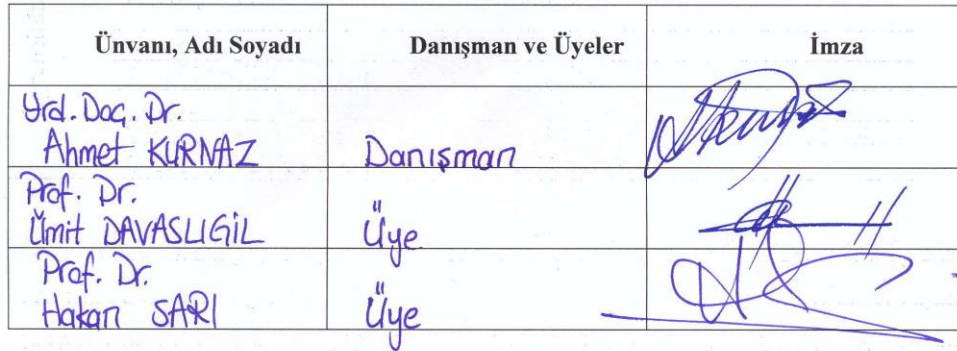 Ünvanı, Adı Soyadı Danışman ve Üyeler İmza
Yrd. Doç. Dr.
Ahmet KURNAZ Danışman
Prof. Dr.
Ümit DAVASLIGİL Üye
Prof. Dr.
Hakan SARI Üye